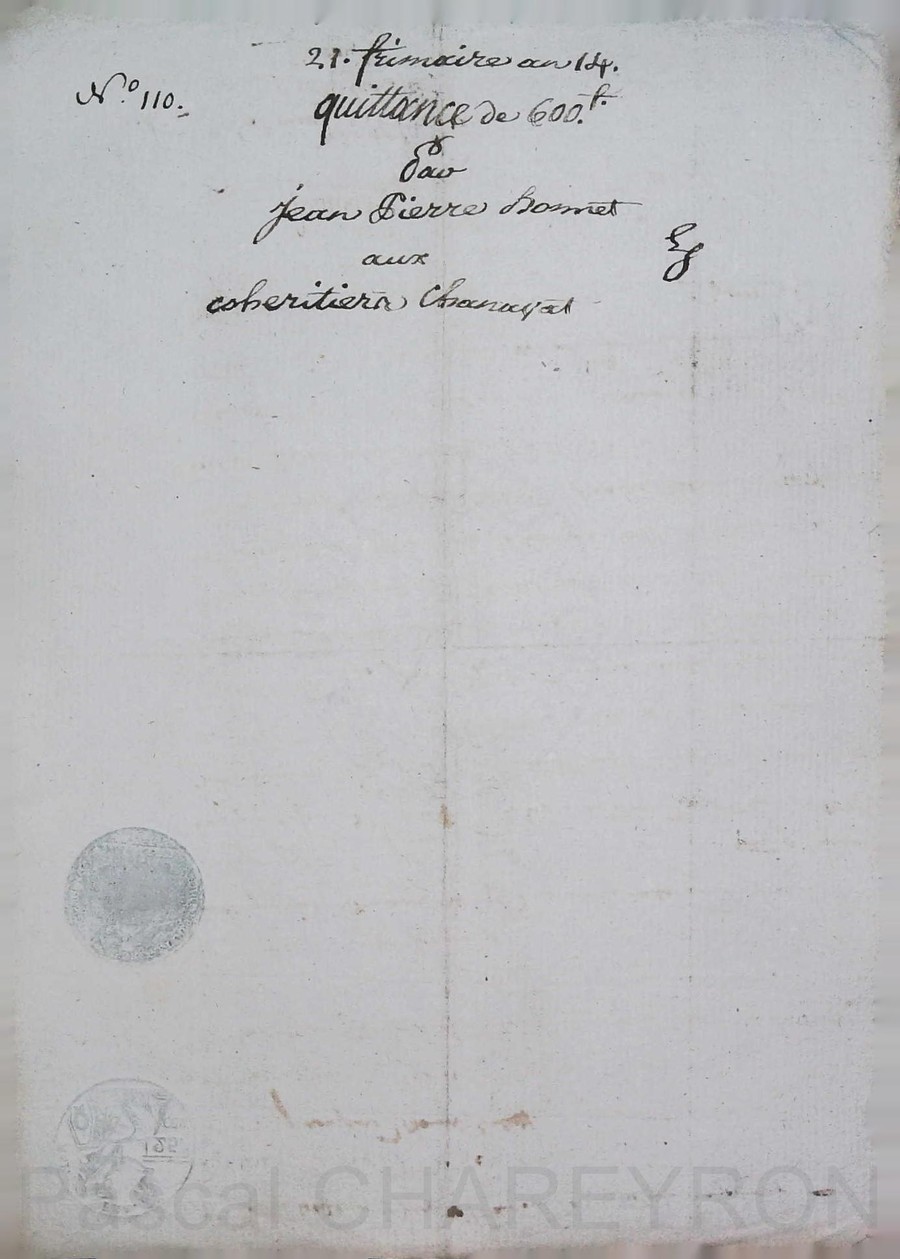 21. frimaire an 14.
N.º 110.
quittance de 600.ᶠ
Par
Jean Pierre Bonnet
aux
coheritiers Chanayat
Pascal CHAREYRON